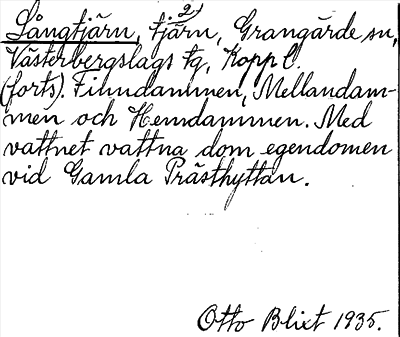 Långtjärn, tjärn, Grangärde sn,
2)
Västerbergslags tg, Kopp l.
(forts). Finndammen, Mellandam-
men och Hemdammen. Med
vattnet vattna dom egendomen
vid Gamla Prästhyttan.
Otto Blixt 1935.